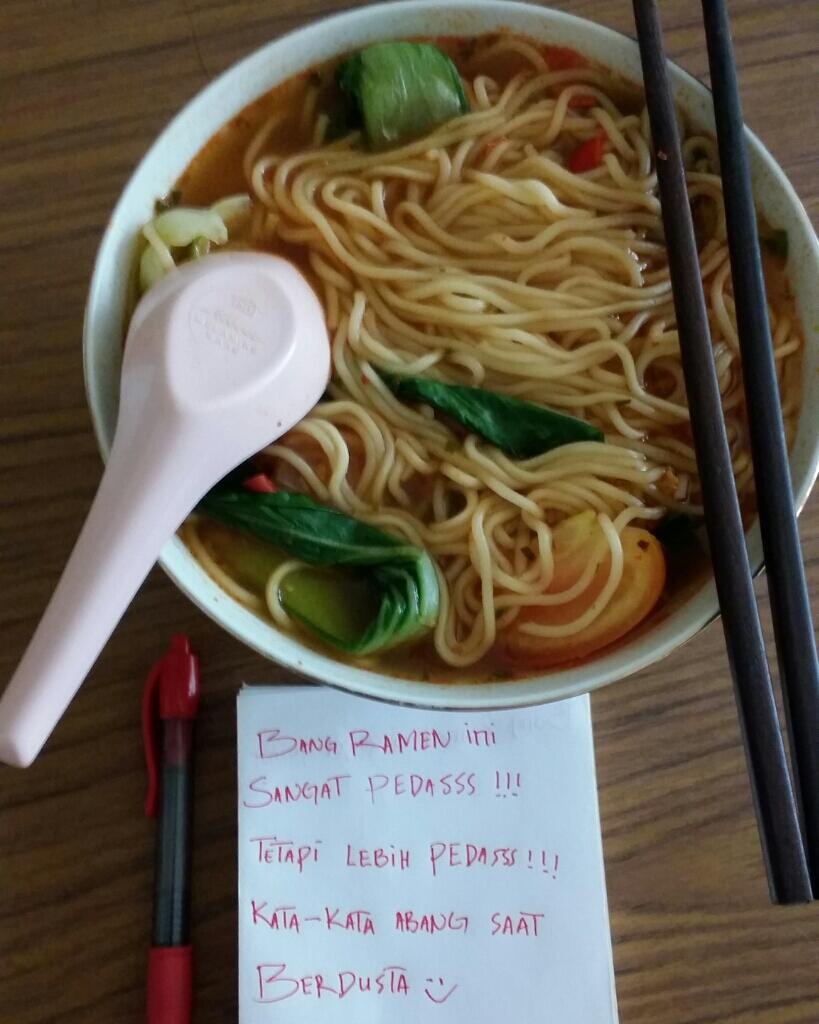 BANG RAMEN ini
SANGAT PEDASSS !!!
TETAPI LEBIH PEDASSS!!!
KATA-KATA ABANG SAAT
BERDUSTA